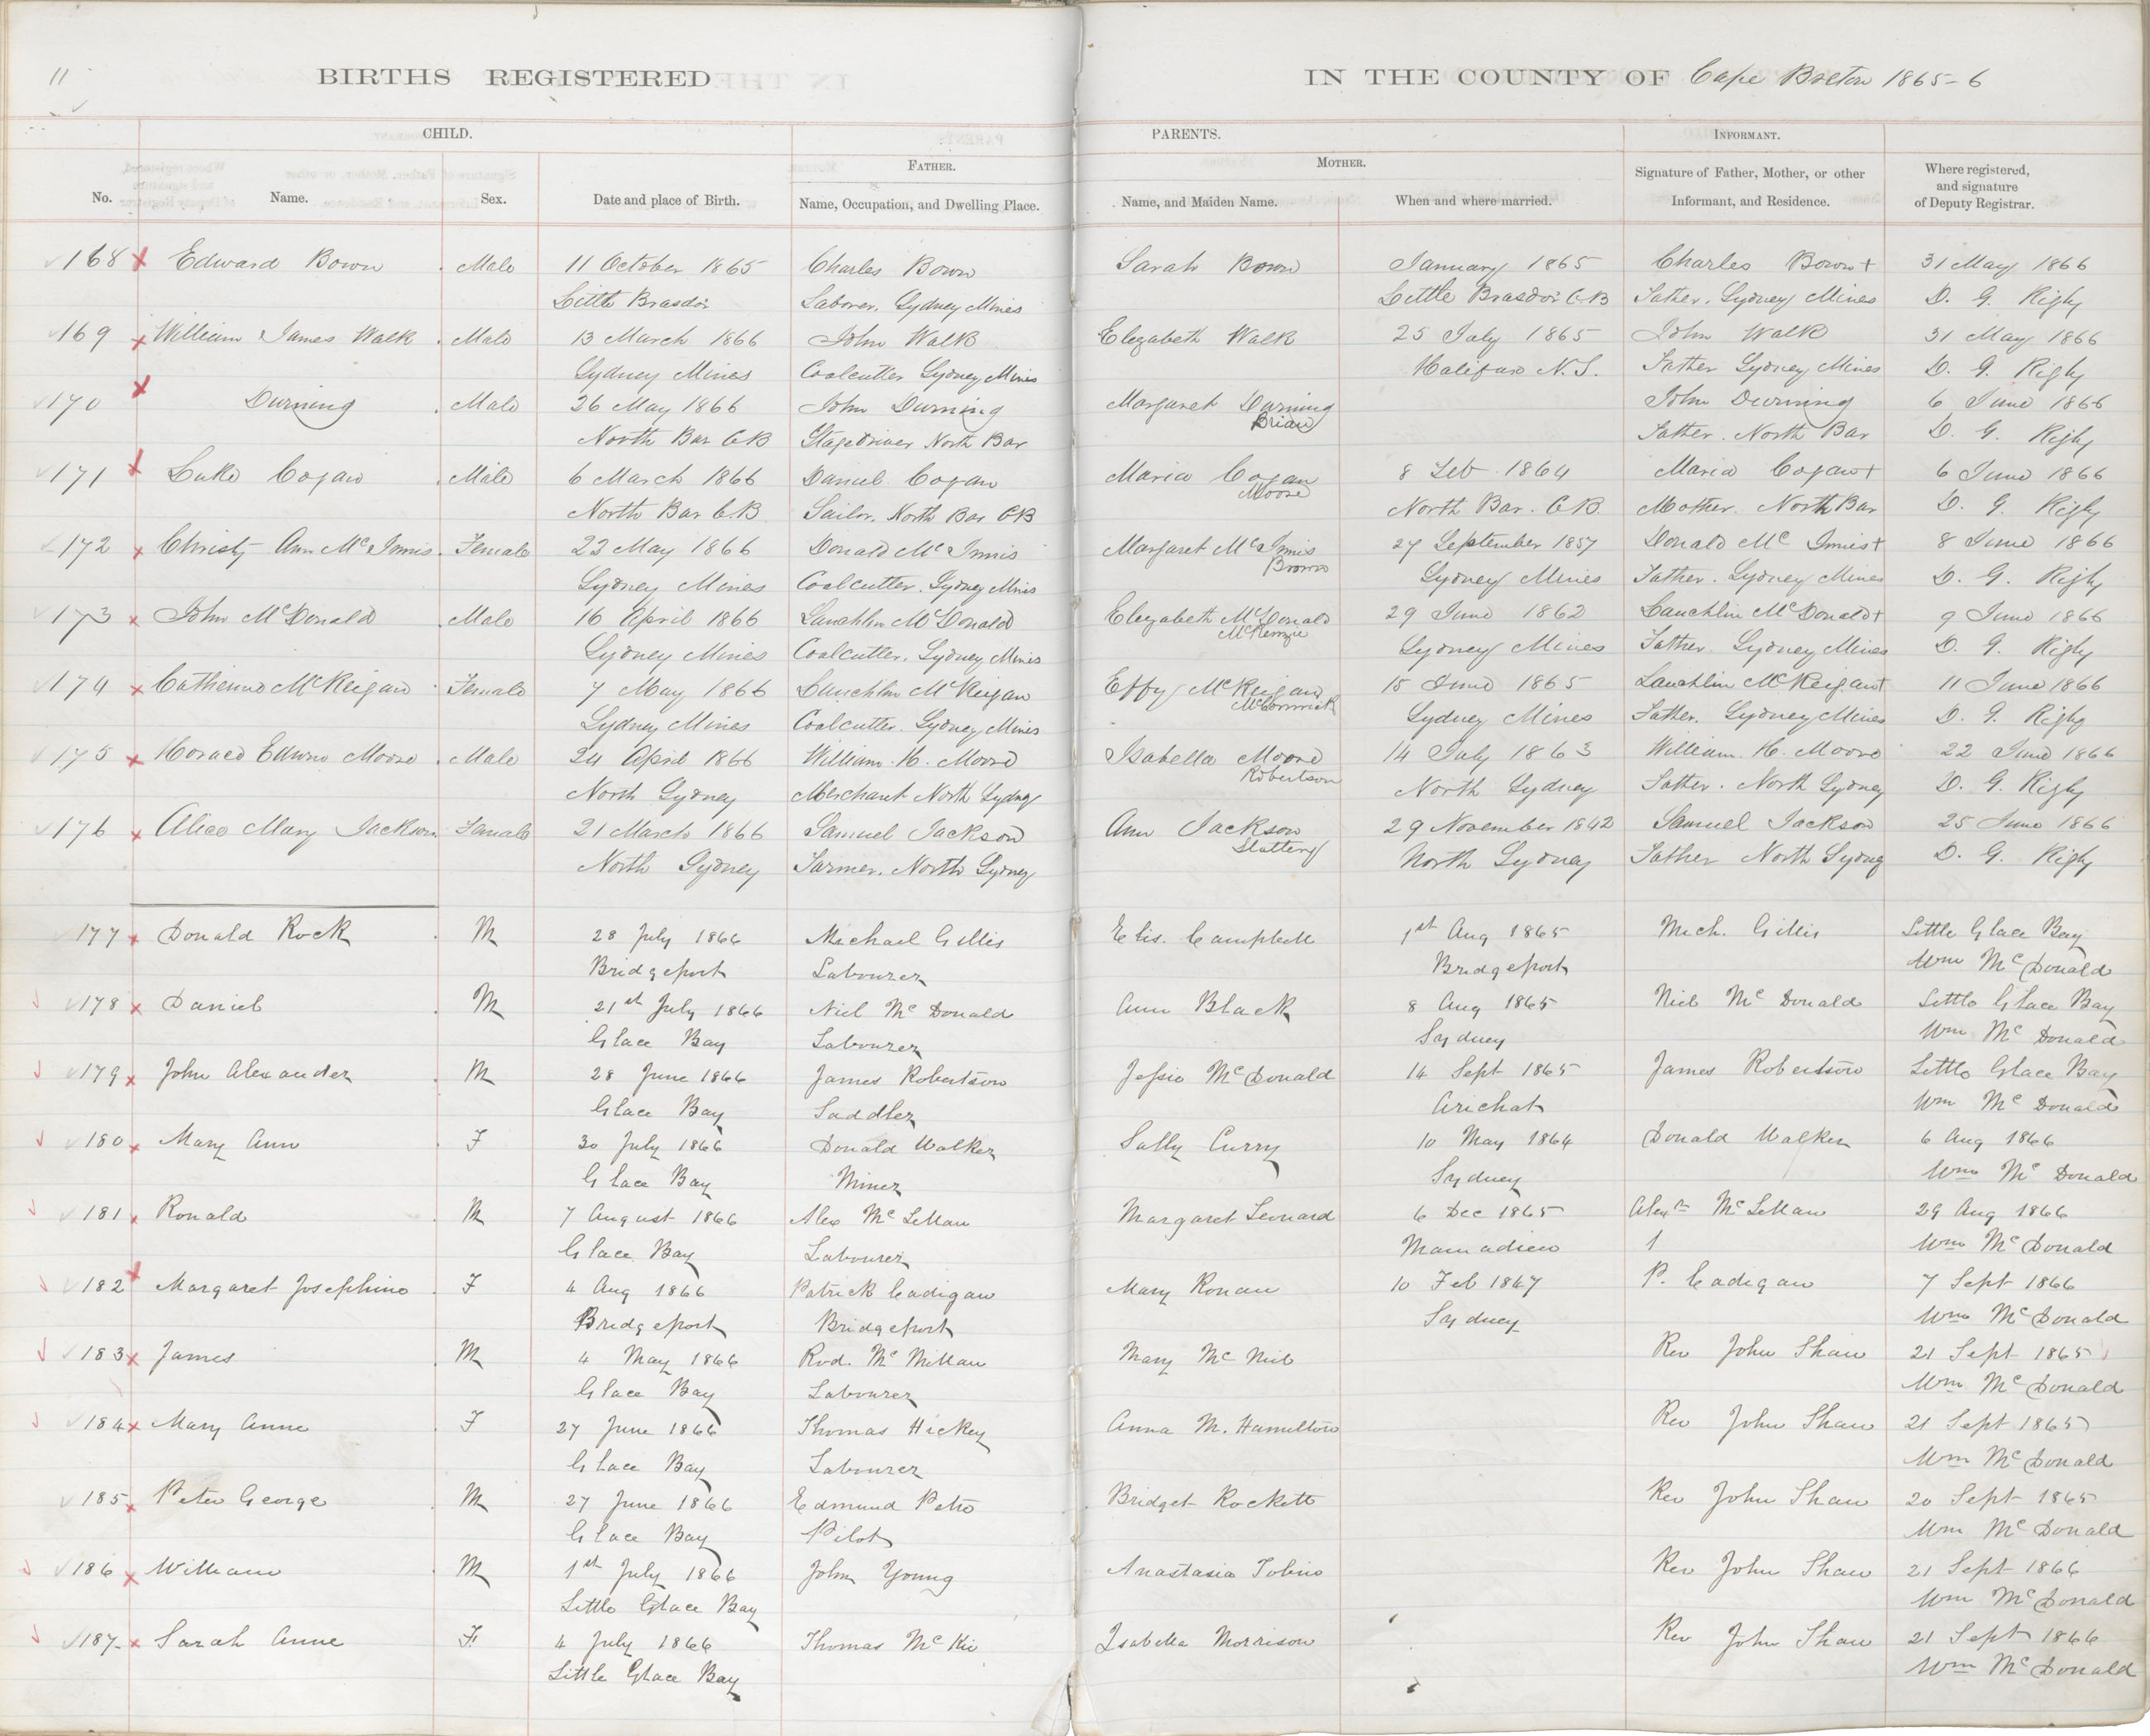 11
BIRTHS REGISTERED IN THE COUNTY OF Cape Breton 1865-6
CHILD. PARENTS. INFORMANT.
FATHER. MOTHER.
No. Name. Sex. Date and place of Birth. Name, Occupation, and Dwelling Place. Name, and Maiden Name. When and where married. Signature of Father, Mother, or other Informant, and Residence. Where registered, and signature of Deputy Registrar.
168 Edward Bown Male 11 October 1865 Charles Bown Sarah Bown January 1865 Charles Bown + 31 May 1866
Little Brasdor Laborer. Sydney Mines Little Brasdor C.B Father. Sydney Mines D. G. Rigby
169 William James Walk Male 13 March 1866 John Walk Elezabeth Walk 25 July 1865 John Walk 31 May 1866
Sydney Mines Coalcutter Sydney Mines Halifax N.S. Father Sydney Mines D. G. Rigby
170 Durning Male 26 May 1866 John Durning Margaret Durning John Durning 6 June 1866
Brian
North Bar CB Stagedriver North Bar Father. North Bar D. G. Rigby
171 Luke Cogan Male 6 March 1866 Daniel Cogan Maria Cogan 8 Feb 1864 Maria Cogan + 6 June 1866
Moore
North Bar C.B. Sailor. North Bar CB North Bar. C.B. Mother. North Bar D. G. Rigby
172 Christy Ann McInnis Female 22 May 1866 Donald McInnis Margaret McInnis 27 September 1857 Donald McInnis + 8 June 1866
Brown
Sydney Mines Coalcutter. Sydney Mines Sydney Mines Father. Sydney Mines D. G. Rigby
173 John McDonald Male 16 April 1866 Lauchlin McDonald Elezabeth McDonald 29 June 1862 Lauchlin McDonald + 9 June 1866
McKenzie
Sydney Mines Coalcutter. Sydney Mines Sydney Mines Father. Sydney Mines D. G. Rigby
174 Catherine McKeigan Female 7 May 1866 Lauchlin McKeigan Effy McKeigan 15 June 1865 Lauchlin McKeigan + 11 June 1866
McCormick
Sydney Mines Coalcutter. Sydney Mines Sydney Mines Father. Sydney Mines D. G. Rigby
175 Horace Edwin Moore Male 24 April 1866 William. H. Moore Isabella Moore 14 July 1863 William. H. Moore 22 June 1866
Robertson
North Sydney Merchant North Sydney North Sydney Father. North Sydney D. G. Rigby
176 Alice Mary Jackson Female 21 March 1866 Samuel Jackson Ann Jackson 29 November 1842 Samuel Jackson 25 June 1866
Slattery
North Sydney Farmer. North Sydney North Sydney Father North Sydney D. G. Rigby
177 Donald Rock M 28 July 1866 Michael Gillis Elis. Campbell 1st Aug 1865 Mich. Gillis Little Glace Bay
Bridgeport Labourer Bridgeport Wm McDonald
178 Daniel M 21st July 1866 Niel McDonald Ann Black 8 Aug 1865 Niel McDonald Little Glace Bay
Glace Bay Labourer Sydney Wm McDonald
179 John Alexander M 28 June 1866 James Robertson Jessie McDonald 14 Sept 1865 James Robertson Little Glace Bay
Glace Bay Saddler Arichat Wm McDonald
180 Mary Ann F 30 July 1866 Donald Walker Sally Curry 10 May 1864 Donald Walker 6 Aug 1866
Glace Bay Miner Sydney Wm McDonald
181 Ronald M 7 August 1866 Alex McLellan Margaret Leonard 6 Dec 1865 Alexr McLellan 29 Aug 1866
Glace Bay Labourer Mamadieu Wm McDonald
182 Margaret Josephine F 4 Aug 1866 Patrick Cadigan Mary Ronan 10 Feb 1847 P. Cadigan 7 Sept 1866
Bridgeport Bridgeport Sydney Wm McDonald
183 James M 4 May 1866 Rod. McMillan Mary McNeil Rev John Shaw 21 Sept 1865
Glace Bay Labourer Wm McDonald
184 Mary Anne F 27 June 1866 Thomas Hickey Anna M. Hamilton Rev John Shaw 21 Sept 1865
Glace Bay Labourer Wm McDonald
185 Peter George M 27 June 1866 Edmund Petro Bridget Rockett Rev John Shaw 20 Sept 1865
Glace Bay Pilot Wm McDonald
186 William M 1st July 1866 John Young Anastasia Tobin Rev John Shaw 21 Sept 1866
Little Glace Bay Wm McDonald
187 Sarah Anne F. 4 July 1866 Thomas McKie Isabella Morrison Rev John Shaw 21 Sept 1866
Little Glace Bay Wm McDonald